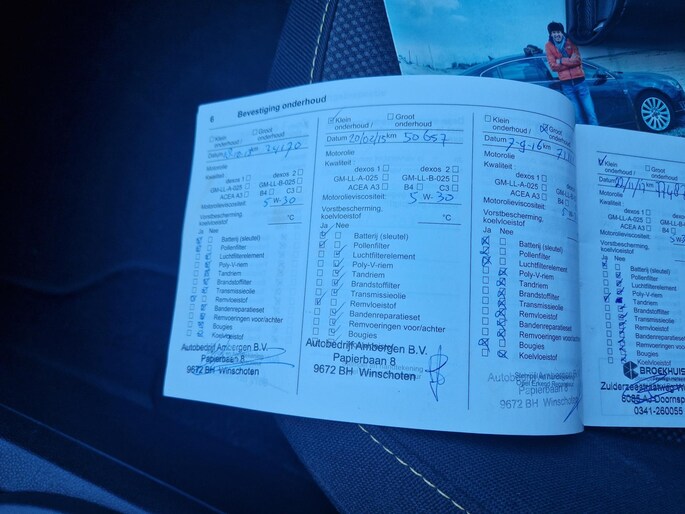 6 Bevestiging onderhoud
Klein onderhoud / Groot onderhoud
Datum km 34170
Motorolie
Kwaliteit :
dexos 1 dexos 2
GM-LL-A-025 GM-LL-B-025
ACEA A3 B4 C3
Motorolieviscositeit: 5 W- 30
Vorstbescherming,
koelvloeistof °C
Ja Nee
Batterij (sleutel)
Pollenfilter
Luchtfilterelement
Poly-V-riem
Tandriem
Brandstoffilter
Transmissieolie
Remvloeistof
Bandenreparatieset
Remvoeringen voor/achter
Bougies
Koelvloeistof
Autobedrijf Ambergen B.V.
Papierbaan 8
9672 BH Winschoten
Klein onderhoud / Groot onderhoud
Datum 20/02/15 km 50657
Motorolie
Kwaliteit :
dexos 1 dexos 2
GM-LL-A-025 GM-LL-B-025
ACEA A3 B4 C3
Motorolieviscositeit: 5 W- 30
Vorstbescherming,
koelvloeistof °C
Ja Nee
Batterij (sleutel)
Pollenfilter
Luchtfilterelement
Poly-V-riem
Tandriem
Brandstoffilter
Transmissieolie
Remvloeistof
Bandenreparatieset
Remvoeringen voor/achter
Bougies
Koelvloeistof
Autobedrijf Ambergen B.V.
Papierbaan 8
9672 BH Winschoten
Klein onderhoud / Groot onderhoud
Datum 7-9-16 km
Motorolie
Kwaliteit :
dexos 1
GM-LL-A-025
ACEA A3
Motorolieviscositeit:
Vorstbescherming,
koelvloeistof
Ja Nee
Batterij (sleutel)
Pollenfilter
Luchtfilterelement
Poly-V-riem
Tandriem
Brandstoffilter
Transmissieolie
Remvloeistof
Bandenreparatieset
Remvoeringen voor/achter
Bougies
Koelvloeistof
Autobedrijf Ambergen B.V.
Papierbaan 8
9672 BH Winschoten
Klein onderhoud /
Datum km
Motorolie
Kwaliteit :
dexos 1
GM-LL-A-025
ACEA A3
Motorolieviscositeit:
Vorstbescherming,
koelvloeistof
Ja Nee
Batterij (sleutel)
Pollenfilter
Luchtfilterelement
Poly-V-riem
Tandriem
Brandstoffilter
Transmissieolie
Remvloeistof
Bandenreparatieset
Remvoeringen
Bougies
BROEKHUIS
Zuiderzeestraatweg W
AJ Doornsp
0341-260055